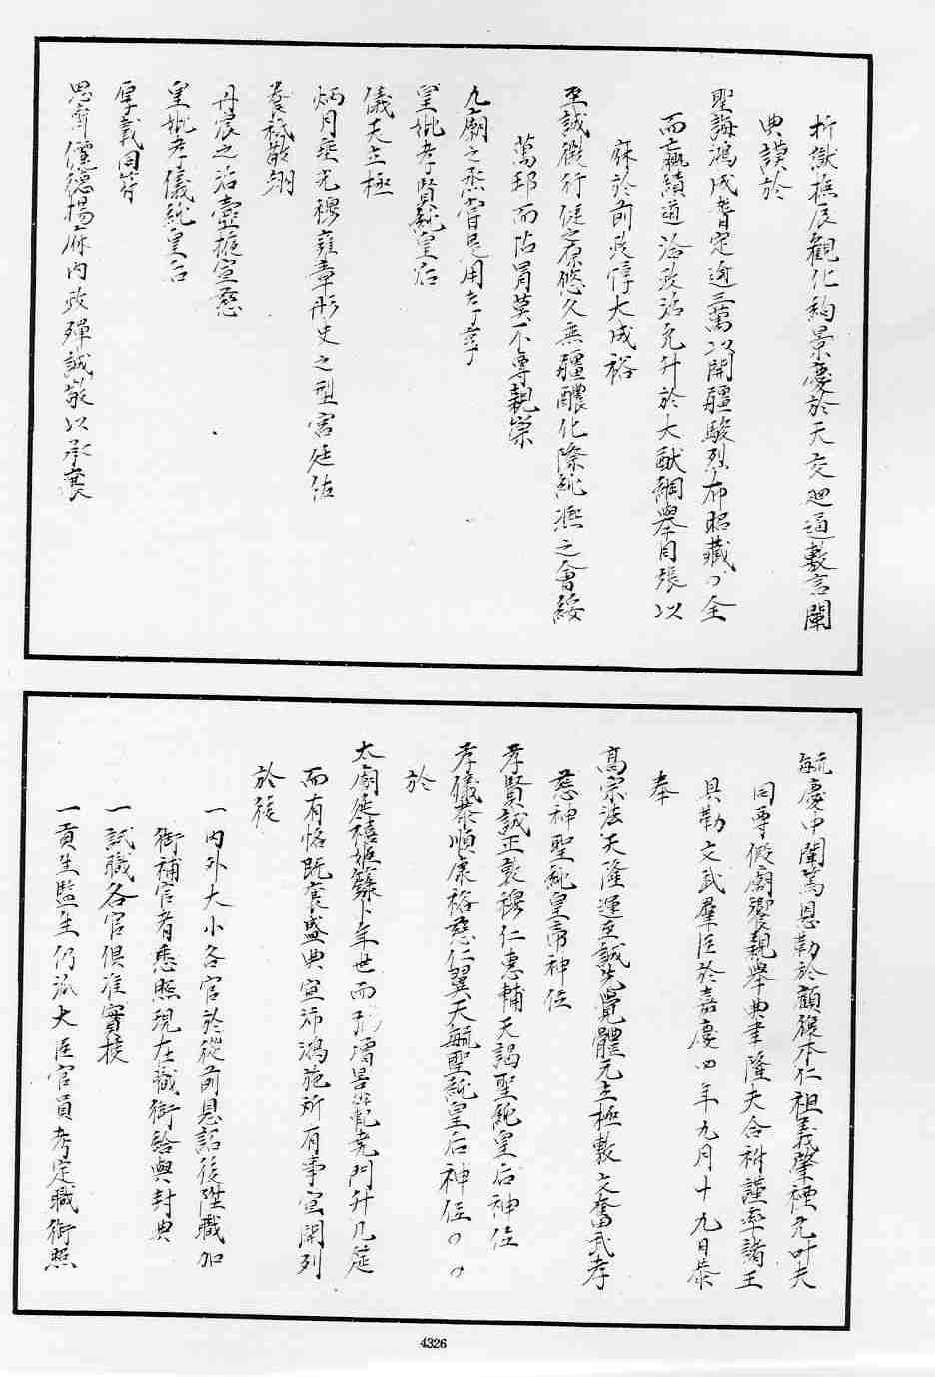 析獄撫辰觀化絢景慶於天交迴通敷言闡
典謨於
聖誨鴻成普定逾三萬以開疆駿烈布昭藏﹅﹅全
而贏績道洽政治允升於大猷綱舉目張以
庥於前政惇大成裕
至誠徵行健之原悠久無疆醲化際純熙之會綏
萬邦而怙冒莫不尊親崇
九廟之烝嘗是用孝享
皇妣孝賢純皇后
儀天立極
炳月垂光穆雍章彤史之型宮廷佐
養祗敬翊
丹宸之治壼掖宣慈
皇妣孝儀純皇后
厚載同符
思齊儷德揚庥內政殫誠敬以承襄
毓慶中闈篤恩勤於顧復本仁祖義肇禋允叶夫
同尊假廟饗親舉典聿隆夫合祔謹率諸王
貝勒文武羣臣於嘉慶四年九月十九日恭
奉
高宗法天隆運至誠先覺體元立極敷文奮武孝
慈神聖純皇帝神位
孝賢誠正敦穆仁惠輔天謁聖純皇后神位
孝儀恭順康裕慈仁翼天毓聖純皇后神位﹅﹅
於
太廟延禧姬籙卜年世而彌
堯門升几筵
而有恪既襄盛典宣沛鴻施所有事宜開列
於後
一內外大小各官於從前恩詔後陞職加
銜補官者悉照現在職銜給與封典
一試職各官俱准實授
一貢生監生仍派大臣官員考定職銜照
4326